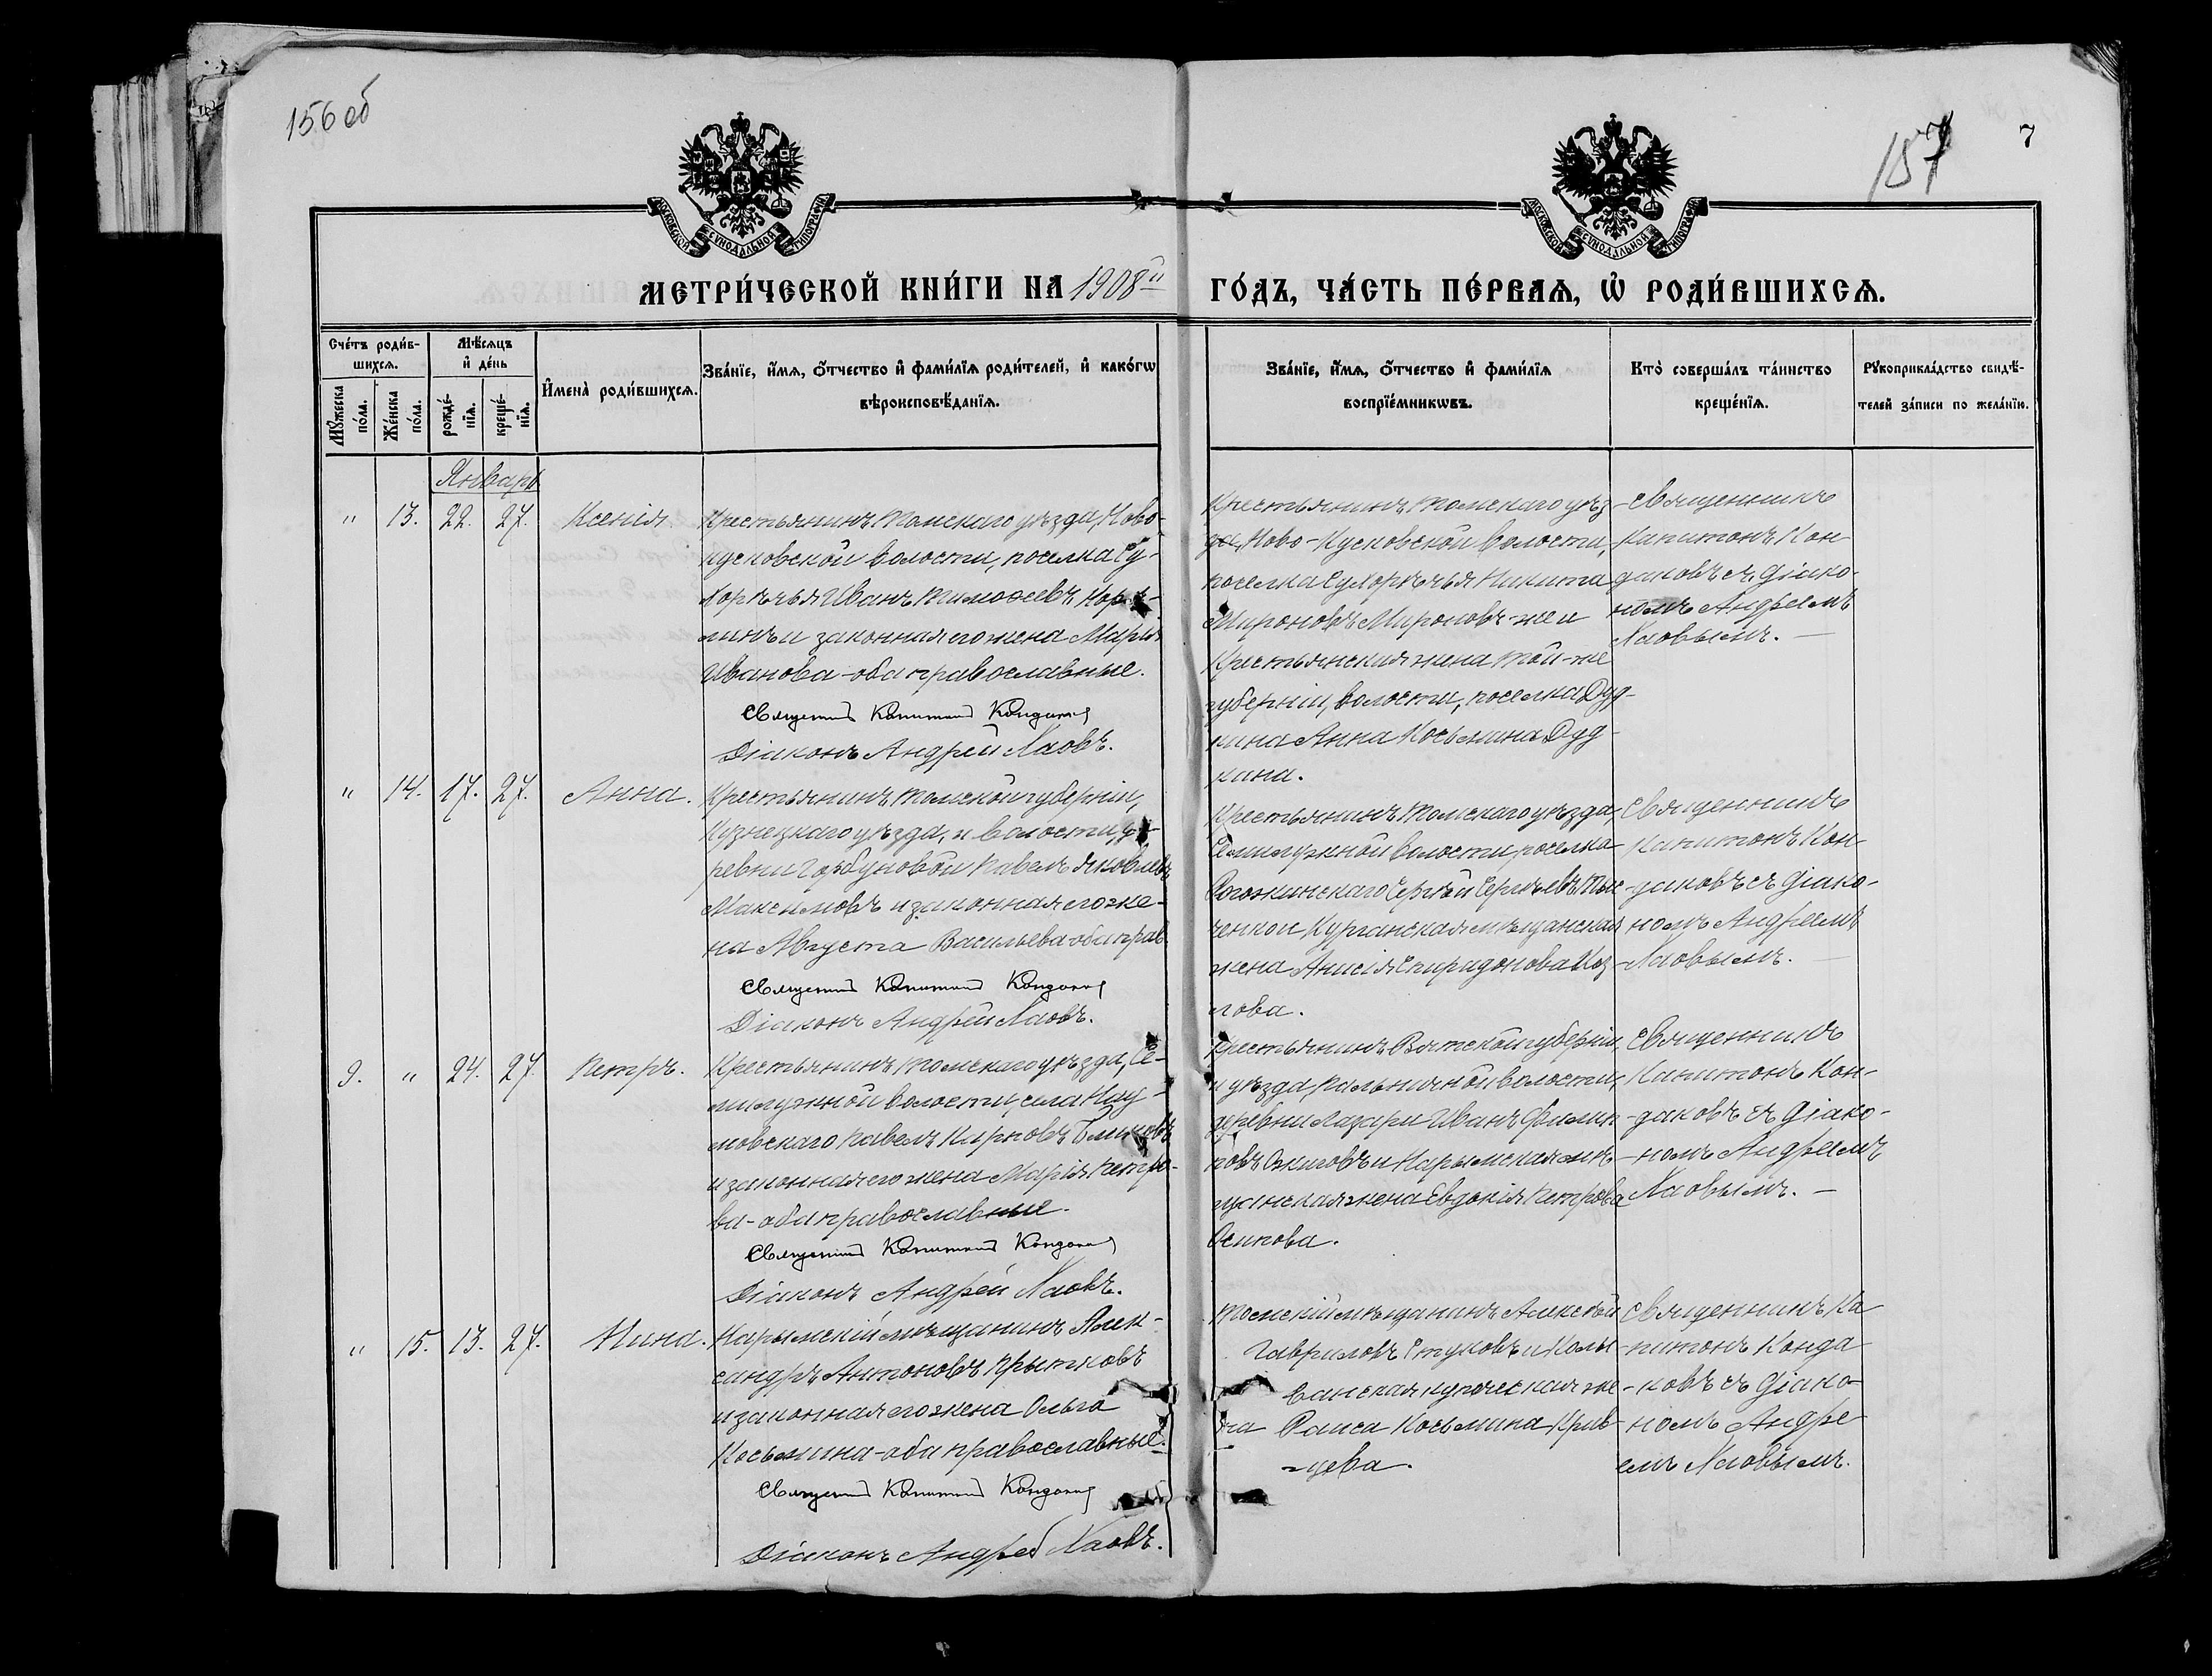 156 об
157
7
МОСКОВСКОЙ СѴНОДАЛЬНОЙ ТИПОГРАФІИ
МОСКОВСКОЙ СѴНОДАЛЬНОЙ ТИПОГРАФІИ
МЕТРИ́ЧЕСКОЙ КНИ́ГИ НА 1908й ГО́ДЪ, ЧА́СТЬ ПЕ́РВАѦ, Ѡ҆ РОДИ́ВШИХСѦ.
Сче́тъ роди́в-
шихсѧ.
Мꙋ́жеска по́ла.
Же́нска по́ла.
Мѣ́сѧцъ
и҆ де́нь
рожде́-
нїѧ.
креще́-
нїѧ.
И҆мена̀ роди́вшихсѧ.
Зва́нїе, и҆́мѧ, ѻ҆́тчество и҆ фами́лїѧ роди́телей, и҆ како́гѡ
вѣроисповѣ́данїѧ.
Зва́нїе, и҆́мѧ, ѻ҆́тчество и҆ фами́лїѧ
воспрїе́мникѡвъ.
Кто̀ соверша́лъ та́инство
креще́нїѧ.
Рꙋкоприкла́дство свидѣ́-
телей за́писи по жела́нїю.
Январь
" 13. 22. 27. Ксенія
Крестьянинъ Томскаго уѣзда, Ново-
кусковской волости, поселка Су-
хорѣчья Иванъ Тимофеевъ
и законная его жена Марія
Иванова - оба православные.
Священник Капитон Кондаков
Діаконъ Андрей Наовъ.
Крестьянинъ Томскаго уѣз-
да, Ново-Кусковской волости,
поселка Сухорѣчья Никита
Мироновъ Мироновъ-же и
Крестьянская жена той-же
губерніи, волости, поселка Дуд-
кина Анна Косьмина Дуд-
кина.
Священникъ
Капитонъ Кон-
даковъ съ діако-
номъ Андреемъ
Наовымъ. —
" 14. 17. 27. Анна.
Крестьянинъ Томской губерніи,
Кузнецкаго уѣзда, и волости де-
ревни Горбуновой Павелъ Яковлевъ
Максимовъ и законная его же-
на Августа Васильева - оба прав.
Священник Капитон Кондаков
Діаконъ Андрей Наовъ.
Крестьянинъ Томскаго уѣзда,
Семилужной волости, поселка
Рогожинскаго Сергѣй Сергѣевъ
и Курганская мѣщанская
жена Анисія Спиридонова
Священникъ
Капитонъ Кон-
даковъ съ діако-
номъ Андреемъ
Наовымъ. —
9. " 24. 27. Петръ.
Крестьянинъ Томскаго уѣзда, Се-
милужной волости, села Нау-
мовскаго Павелъ Карповъ
и законная его жена Марія Петро-
ва - оба православные.
Священник Капитон Кондаков
Діаконъ Андрей Наовъ.
Крестьянинъ Вятской губерніи,
и уѣзда, Пальничной волости,
деревни Лазари Иванъ Филип-
повъ Ожиговъ и Нарымская мѣ-
щанская жена Евдокія Петрова
Осипова.
Священникъ
Капитонъ Кон-
даковъ съ діако-
номъ Андреемъ
Наовымъ. —
" 15. 13. 27. Нина.
Нарымскій мѣщанинъ Алек-
сандръ Антоновъ Прытковъ
и законная его жена Ольга
Косьмина - оба православные.
Священник Капитон Кондаков
Діаконъ Андрей Наовъ.
Томскій мѣщанинъ Алексѣй
Гавриловъ Стуковъ и Колы-
ванская купеческая же-
на Раиса Косьмина Крив-
цева.
Священникъ Ка-
питонъ Конда-
ковъ съ діако-
номъ Андре-
емъ Наовымъ.